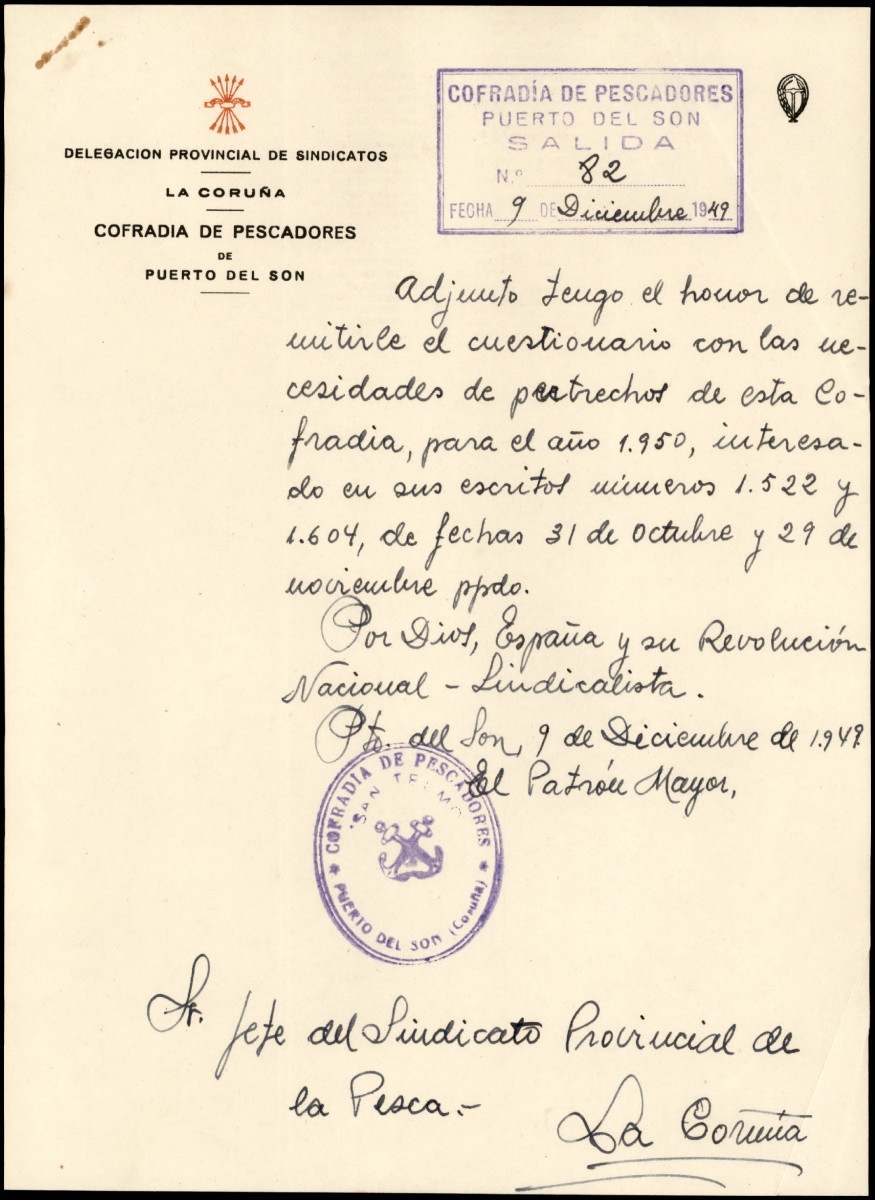 DELEGACION PROVINCIAL DE SINDICATOS
LA CORUÑA
COFRADIA DE PESCADORES
DE
PUERTO DEL SON
COFRADÍA DE PESCADORES
PUERTO DEL SON
SALIDA
N.º 82
FECHA 9 DE Diciembre 1949
Adjunto tengo el honor de re-
mitirle el cuestionario con las ne-
cesidades de pertrechos de esta Co-
fradia, para el año 1.950, interesa-
do en sus escritos números 1.522 y
1.604, de fechas 31 de Octubre y 29 de
noviembre ppdo.
Por Dios, España y su Revolución
Nacional - Sindicalista.
Pto. del Son, 9 de Diciembre de 1.949
El Patrón Mayor,
COFRADIA DE PESCADORES
"SAN TELMO"
PUERTO DEL SON (Coruña)
Sr. Jefe del Sindicato Provincial de
la Pesca.-
La Coruña